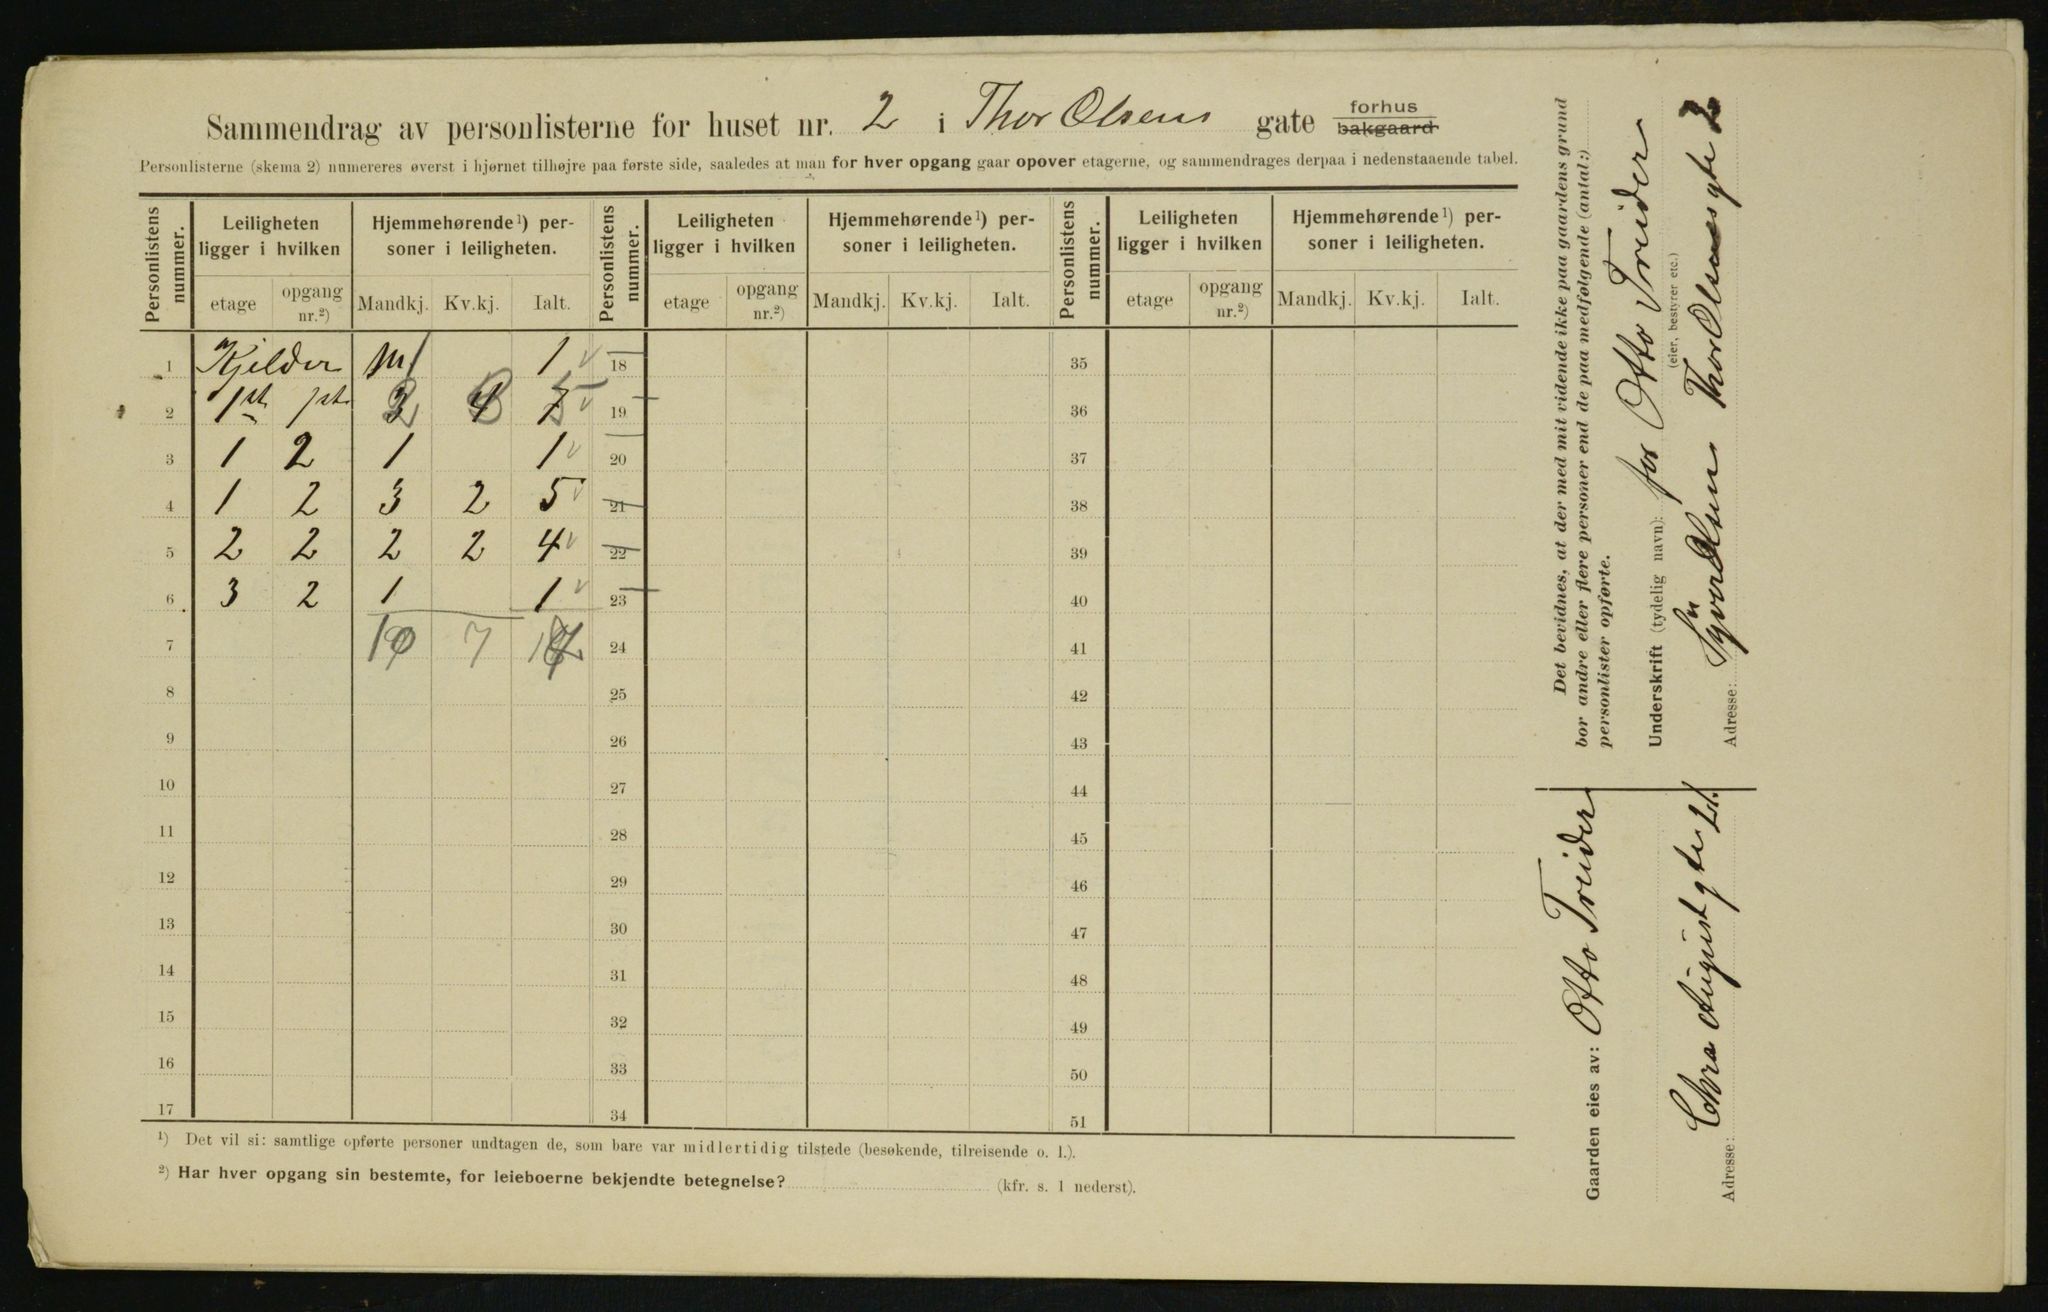 Sammendrag av personlisterne for huset nr. 2 i Thor Olsens gate forhus bakgaard
Personlisterne (skema 2) numereres øverst i hjørnet tilhøjre paa første side, saaledes at man for hver opgang gaar opover etagerne, og sammendrages derpaa i nedenstaaende tabel.
Personlistens nummer. Leiligheten ligger i hvilken Hjemmehørende¹) personer i leiligheten. Personlistens nummer. Leiligheten ligger i hvilken Hjemmehørende¹) personer i leiligheten. Personlistens nummer. Leiligheten ligger i hvilken Hjemmehørende¹) personer i leiligheten.
etage opgang nr.²) Mandkj. Kv.kj. Ialt. etage opgang nr.²) Mandkj. Kv.kj. Ialt. etage opgang nr.²) Mandkj. Kv.kj. Ialt.
1 Kjelder 1 1 18 35
2 1st 1st 3 4 7 19 36
3 1 2 1 1 20 37
4 1 2 3 2 5 21 38
5 2 2 2 2 4 22 39
6 3 2 1 1 23 40
7 7 24 41
8 25 42
9 26 43
10 27 44
11 28 45
12 29 46
13 30 47
14 31 48
15 32 49
16 33 50
17 34 51
¹) Det vil si: samtlige opførte personer undtagen de, som bare var midlertidig tilstede (besøkende, tilreisende o. l.).
²) Har hver opgang sin bestemte, for leieboerne bekjendte betegnelse? (kfr. s. 1 nederst).
Det bevidnes, at der med mit vidende ikke paa gaardens grund
bor andre eller flere personer end de paa medfølgende (antal:)
personlister opførte.
Underskrift (tydelig navn): for Otto Treider
(eier, bestyrer etc.)
Olsen Thor Olsensgte 2
Adresse:
Gaarden eies av: Otto Treider
Chra Augustgte 21.
Adresse: